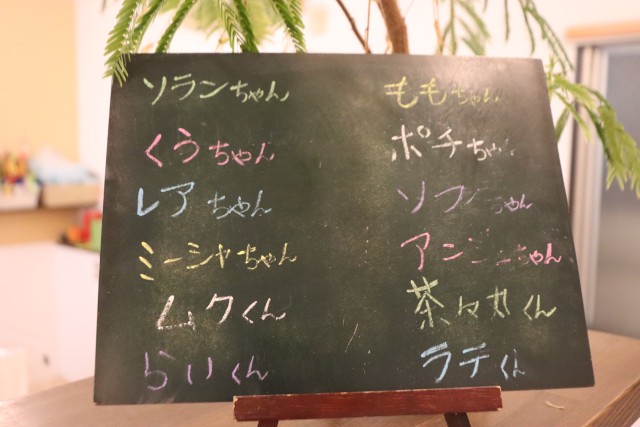 ソランちゃん
くうちゃん
レアちゃん
ミーシャちゃん
ムクくん
らいくん
ももちゃん
ポチちゃん
ちゃん
ちゃん
茶々丸くん
ラテくん